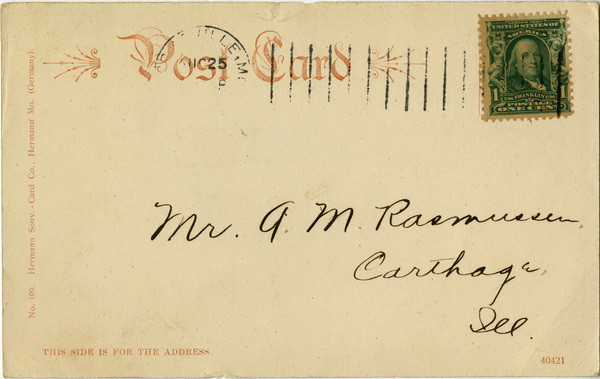 Post Card
25
UNITED STATES OF
AMERICA
FRANKLIN
1 POSTAGE 1
ONE CENT
Mr. A. M. Rasmussen
Carthage,
Ill.
THIS SIDE IS FOR THE ADDRESS.
40421
No. 100. Hermann Souv.-Card Co., Hermann Mo. (Germany).